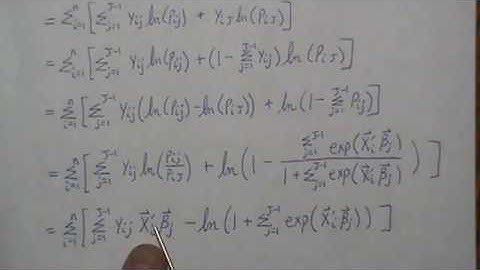 = Σⁿᵢ₌₁ [ Σᴶ⁻¹ⱼ₌₁ Yᵢⱼ ln(Pᵢⱼ) + Yᵢ_J ln(Pᵢ_J) ]
= Σⁿᵢ₌₁ [ Σᴶ⁻¹ⱼ₌₁ Yᵢⱼ ln(Pᵢⱼ) + (1 − Σᴶ⁻¹ⱼ₌₁ Yᵢⱼ) ln(Pᵢ_J) ]
= Σⁿᵢ₌₁ [ Σᴶ⁻¹ⱼ₌₁ Yᵢⱼ (ln(Pᵢⱼ) − ln(Pᵢ_J)) + ln(1 − Σᴶ⁻¹ⱼ₌₁ Pᵢⱼ) ]
= Σⁿᵢ₌₁ [ Σᴶ⁻¹ⱼ₌₁ Yᵢⱼ ln(Pᵢⱼ / Pᵢ_J) + ln( 1 − Σᴶ⁻¹ⱼ₌₁ exp(X⃗ᵢ β⃗ⱼ) / (1 + Σᴶ⁻¹ⱼ₌₁ exp(X⃗ᵢ β⃗ⱼ)) ) ]
= Σⁿᵢ₌₁ [ Σᴶ⁻¹ⱼ₌₁ Yᵢⱼ X⃗ᵢ β⃗ⱼ − ln( 1 + Σᴶ⁻¹ⱼ₌₁ exp(X⃗ᵢ β⃗ⱼ) ) ]